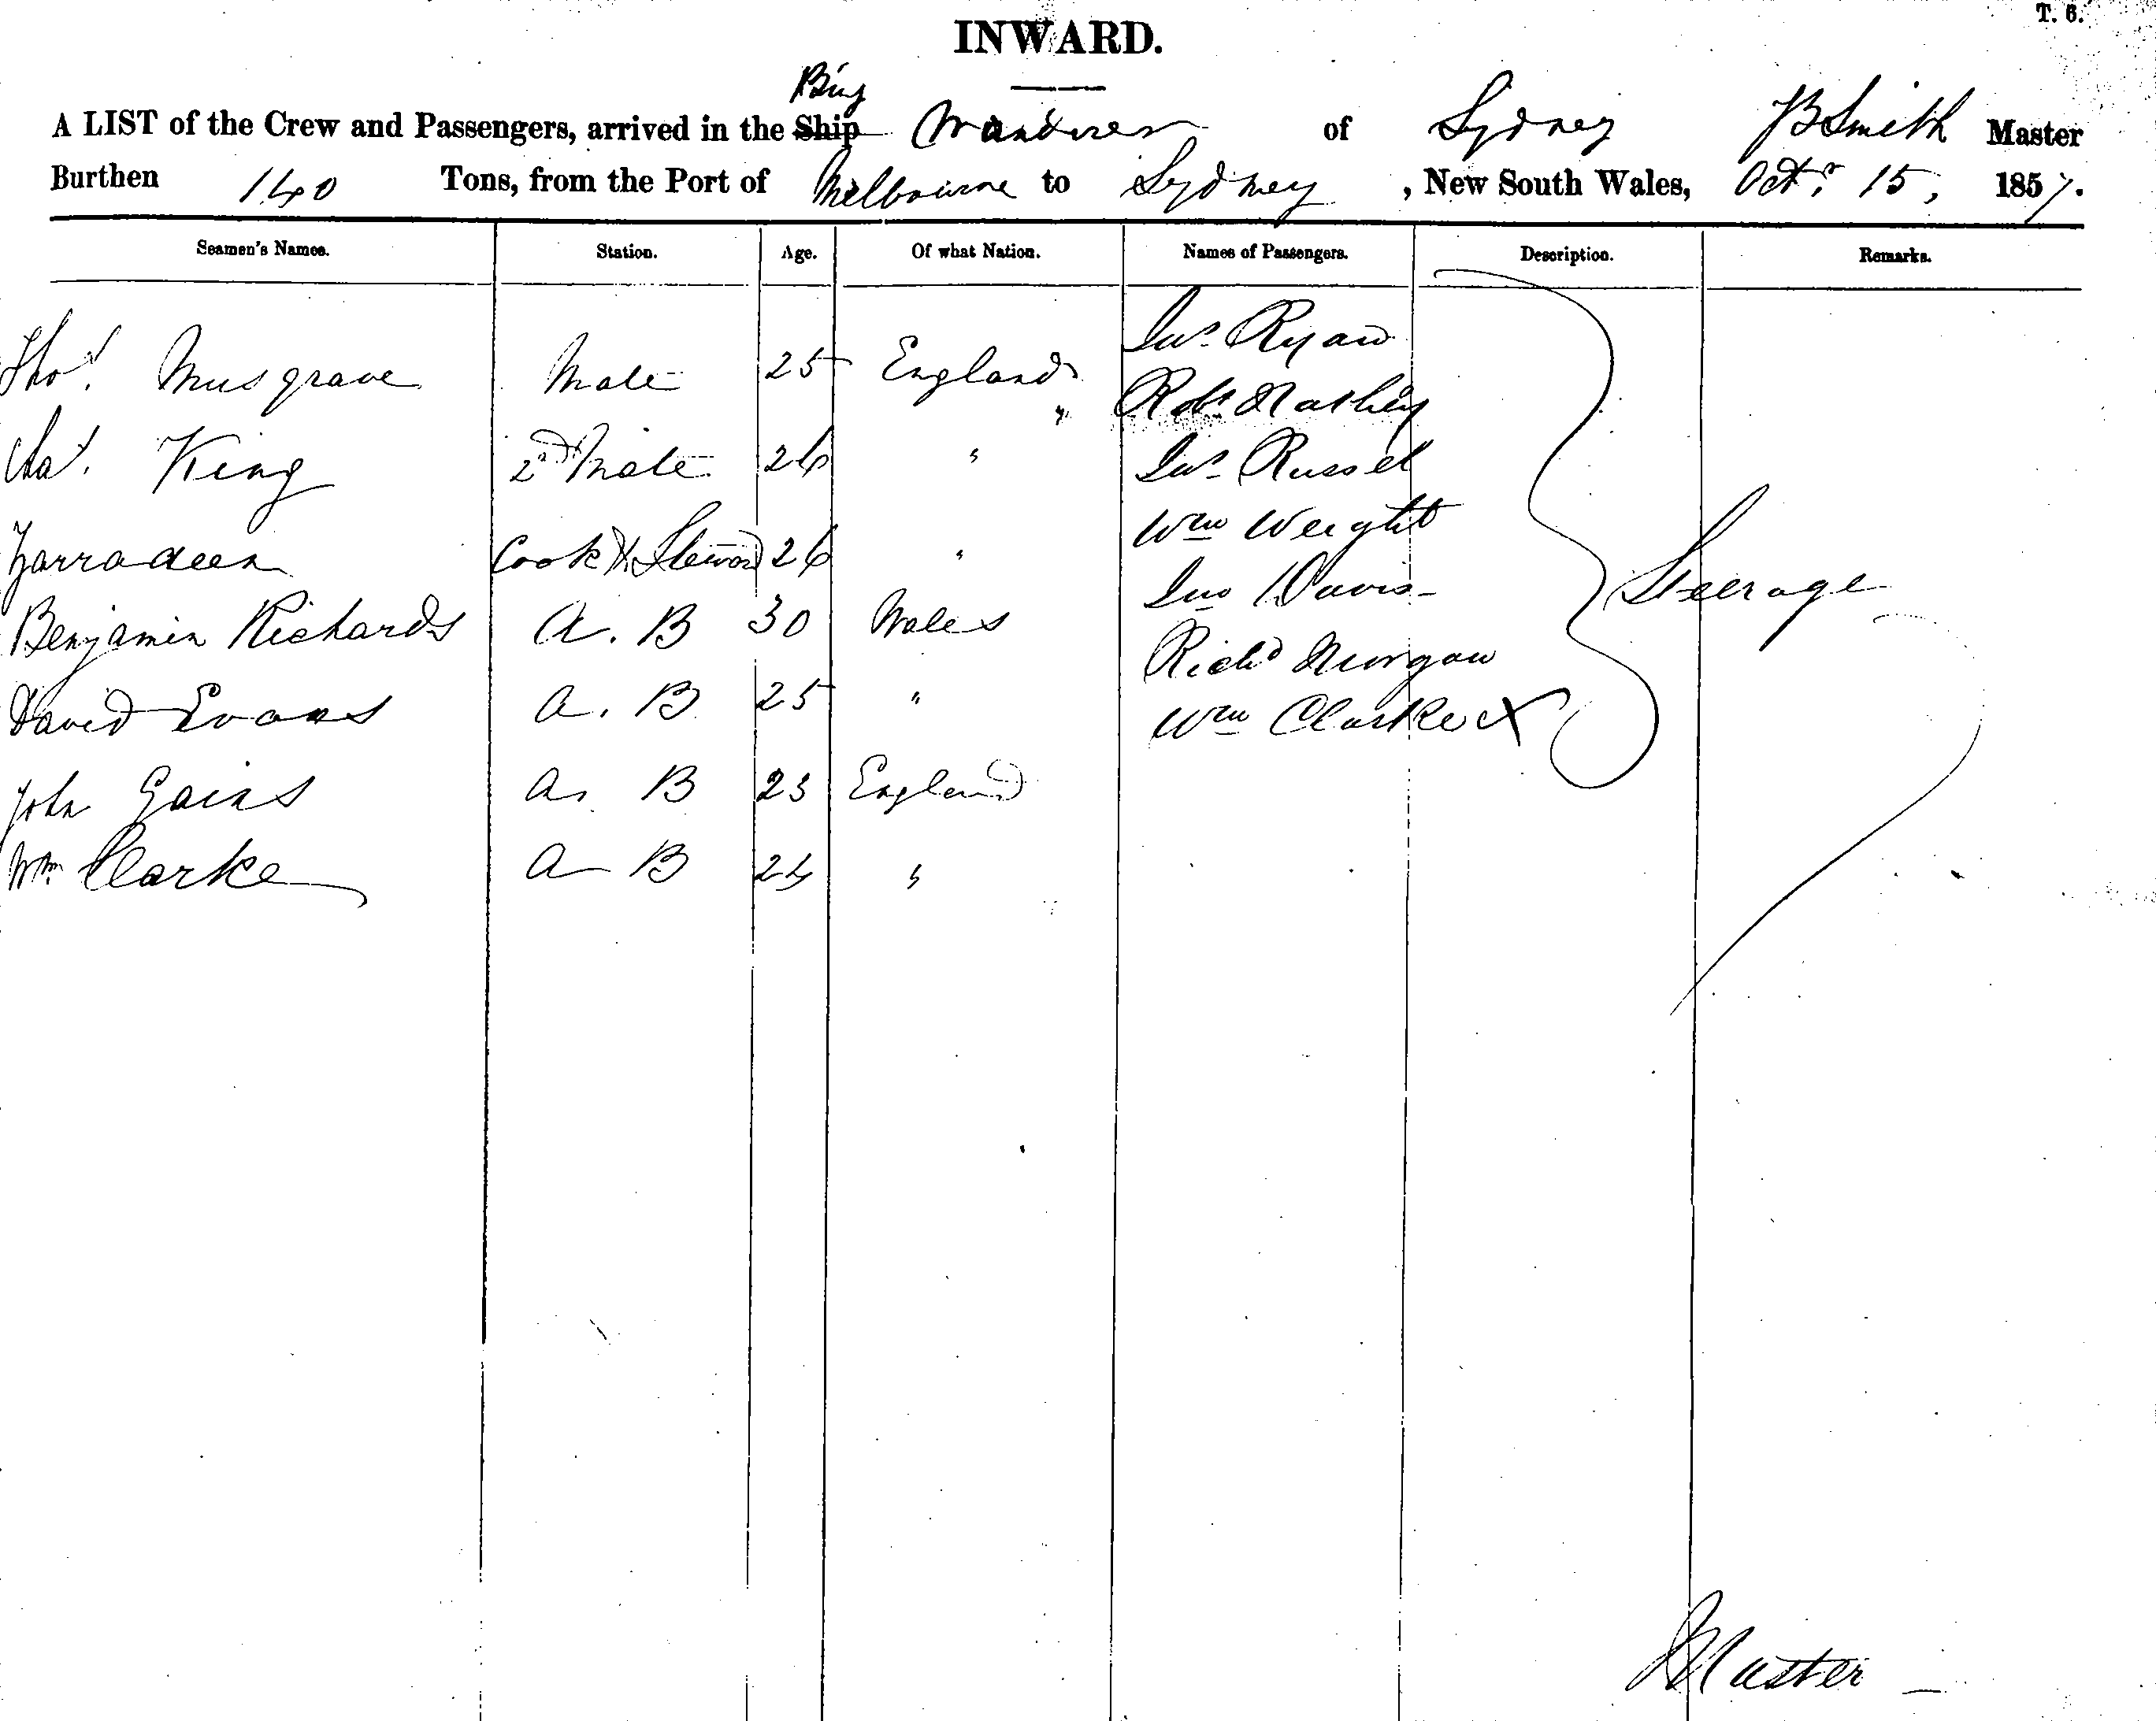 T. 6.
INWARD.
Brig
A LIST of the Crew and Passengers, arrived in the Ship Wanderer of Sydney JB Smith Master
Burthen 140 Tons, from the Port of Melbourne to Sydney , New South Wales, Octr. 15, 1857.
Seamen's Names. Station. Age. Of what Nation. Names of Passengers. Description. Remarks.
Jno Ryan
Thos. Musgrave Mate 25 England
" Robt
Chas. King 2nd Mate 26 " Jno Russel
Wm Weight
Zarradeen Cook & Steward 26 "
Jno Davis Steerage
Benjamin Richards A. B 30 Wales
Richd Morgan
David Evans A. B 25 " Wm Clarke X
John Gains A. B 23 England
Wm. Clarke A B 24 "
Master